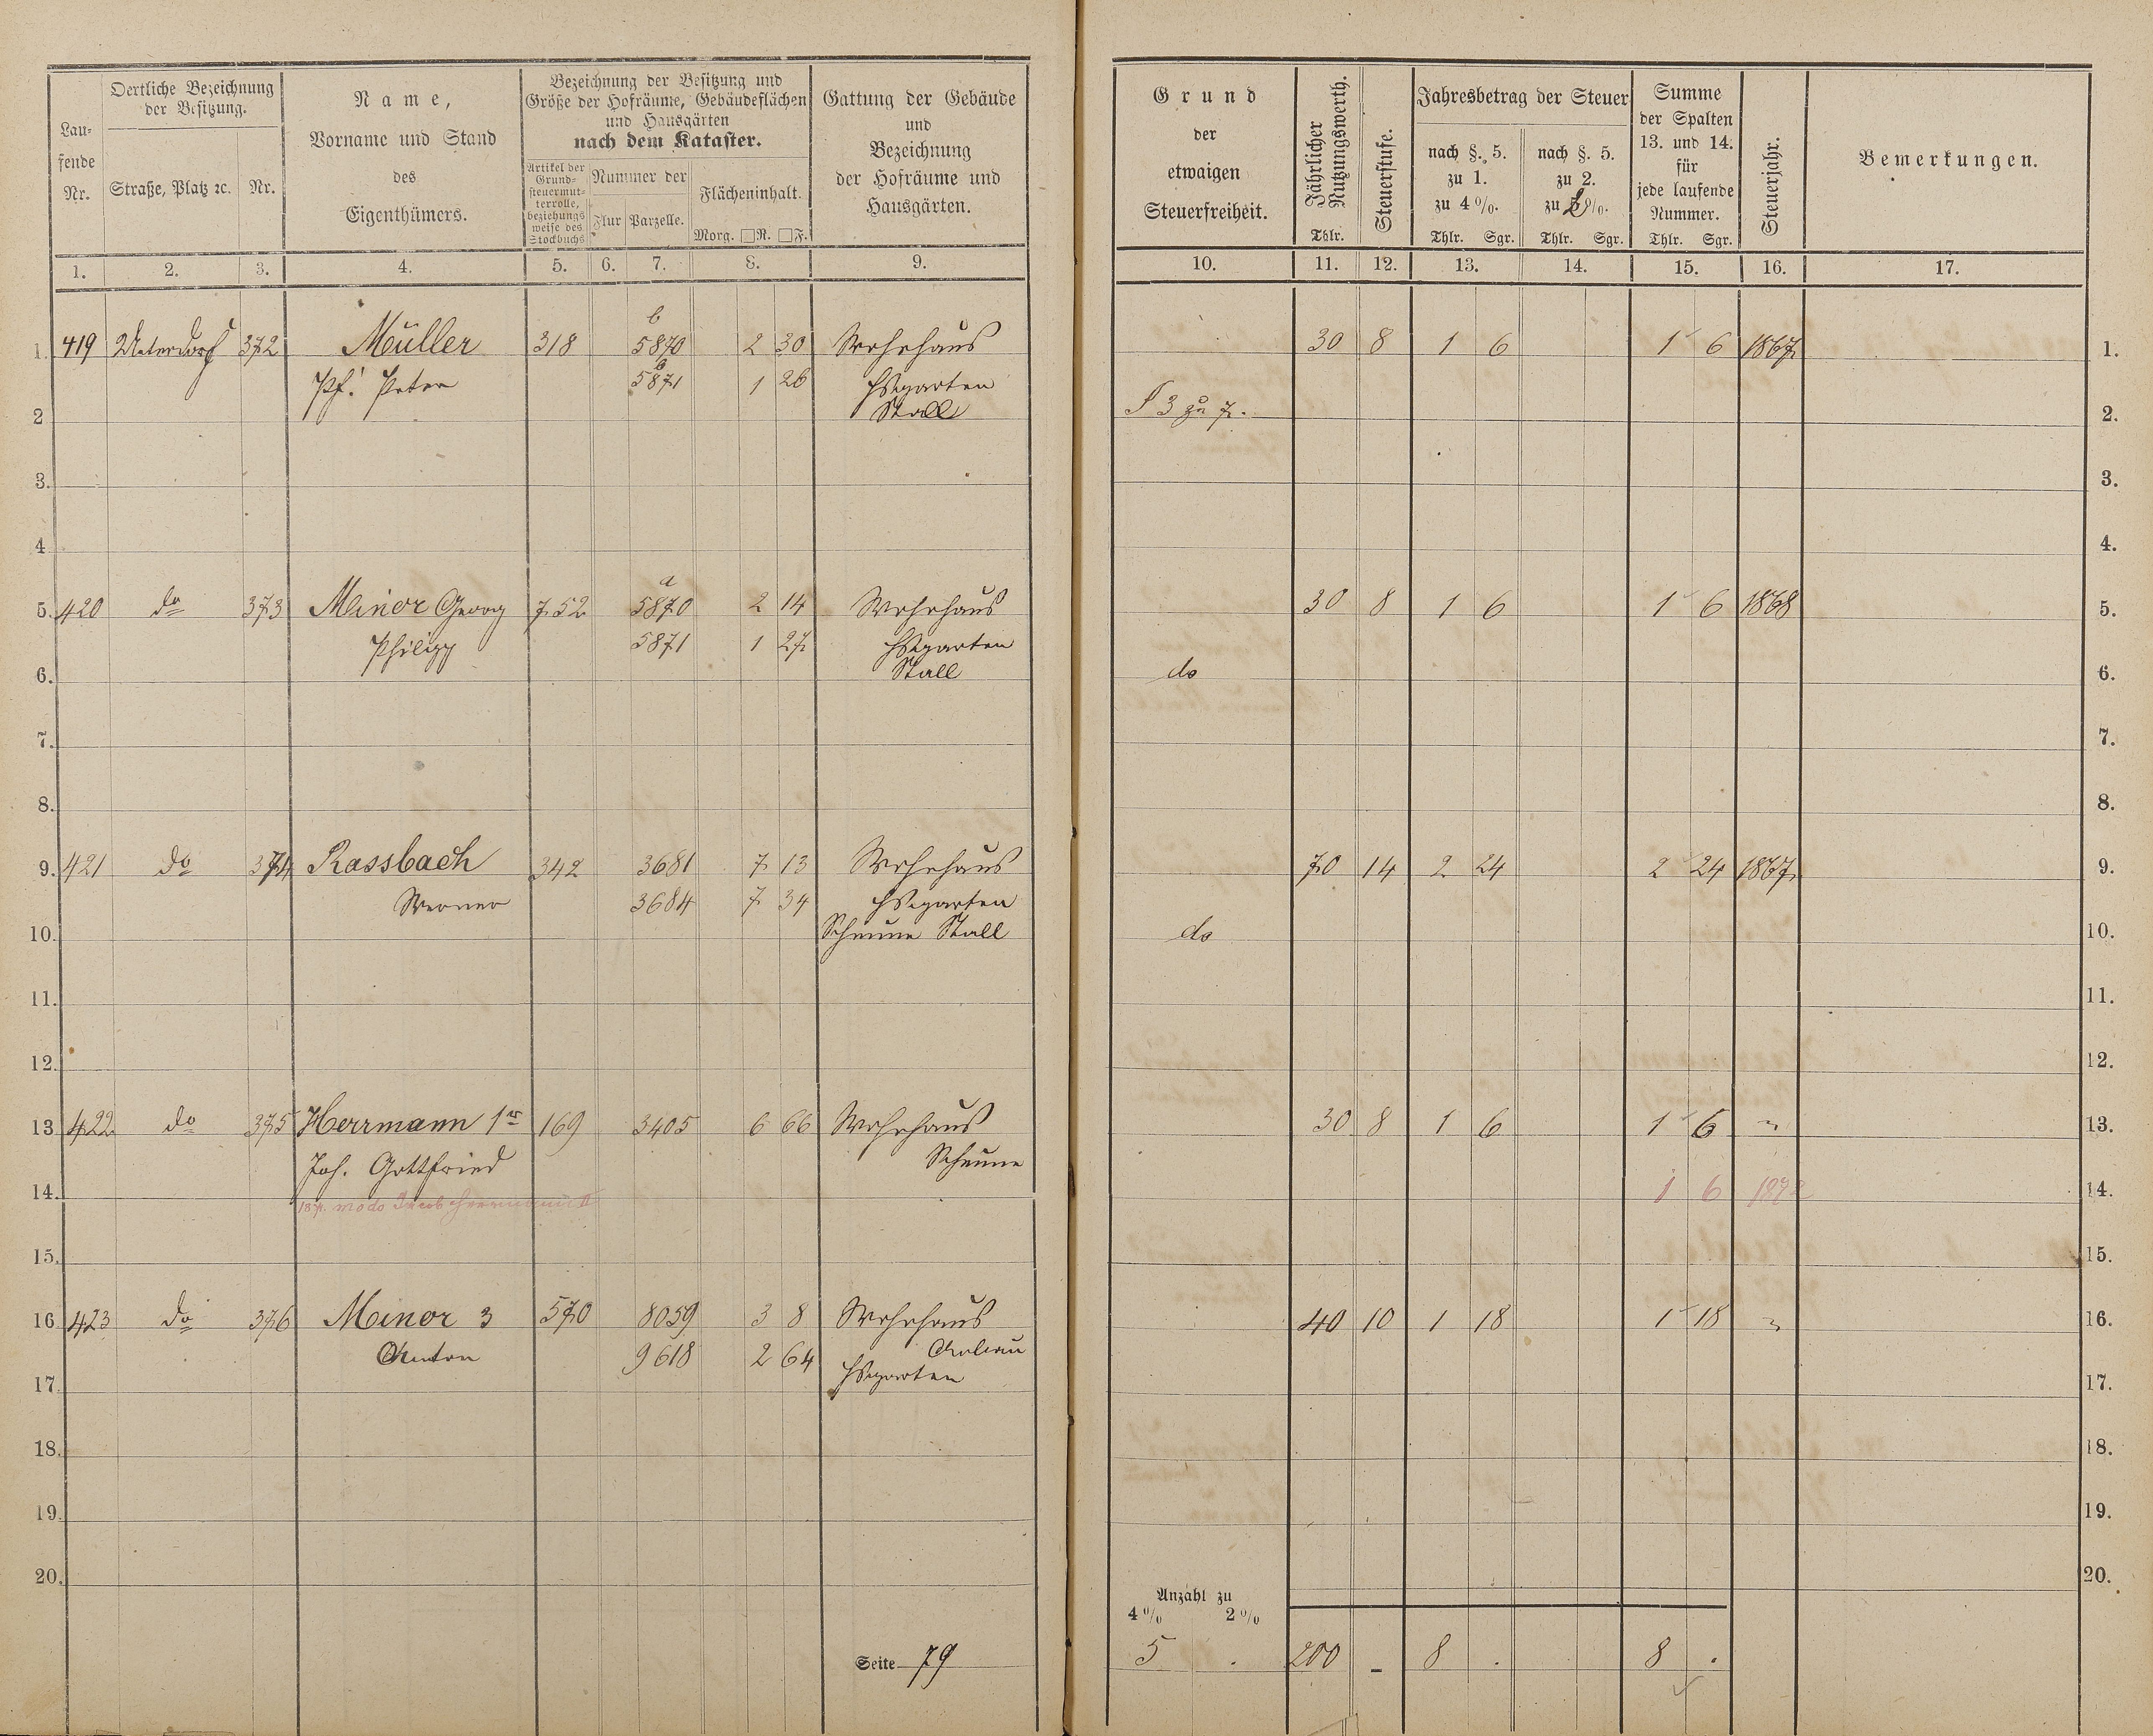 Lau-
fende
Nr.
Oertliche Bezeichnung
der Besitzung.
Straße, Platz ꝛc. Nr.
Name,
Vorname und Stand
des
Eigenthümers.
Bezeichnung der Besitzung und
Größe der Hofräume, Gebäudeflächen
und Hausgärten
nach dem Kataster.
Artikel der
Grund-
steuermut-
terrolle,
beziehungs
weise des
Stockbuchs
Nummer der
Flur Parzelle.
Flächeninhalt.
Morg. □R. □F.
Gattung der Gebäude
und
Bezeichnung
der Hofräume und
Hausgärten.
Grund
der
etwaigen
Steuerfreiheit.
Jährlicher
Nutzungswerth.
Thlr.
Steuerstufe.
Jahresbetrag der Steuer
nach §. 5.
zu 1.
zu 4%.
Thlr. Sgr.
nach §. 5.
zu 2.
zu 2%.
Thlr. Sgr.
Summe
der Spalten
13. und 14.
für
jede laufende
Nummer.
Thlr. Sgr.
Steuerjahr.
Bemerkungen.
1. 2. 3. 4. 5. 6. 7. 8. 9. 10. 11. 12. 13. 14. 15. 16. 17.
b
1. 419 Unterdorf 372 Müller 318 5870 2 30 Wohnhaus 30 8 1 6 1 6 1867 1.
b
Ph. Peter 5871 1 26 Hsgarten
2 Stall § 3 zu 7. 2.
3. 3.
4 4.
a
5. 420 do 373 Minor Georg 752 5870 2 14 Wohnhaus 30 8 1 6 1 6 1868 5.
Philipp 5871 1 27 Hsgarten
6. Stall do 6.
7. 7.
8. 8.
9. 421 do 374 Rassbach 342 3681 7 13 Wohnhaus 70 14 2 24 2 24 1867 9.
Werner 3684 7 34 Hsgarten
10. Scheune Stall do 10.
11. 11.
12. 12.
13 422 do 375 Herrmann 1r 169 3405 6 66 Wohnhaus 30 8 1 6 1 6 " 13.
Joh. Gottfried Scheune
14. modo Jacob Herrmann II 1 6 14.
15. 15.
16 423 do 376 Minor 3 570 8059 3 8 Wohnhaus 40 10 1 18 1 18 " 16.
Anton 9618 2 64 Anbau
17. Hsgarten 17.
18. 18.
19. 19.
20. 20.
Anzahl zu
4% 2%
Seite 79 5 . 200 - 8 . 8 .